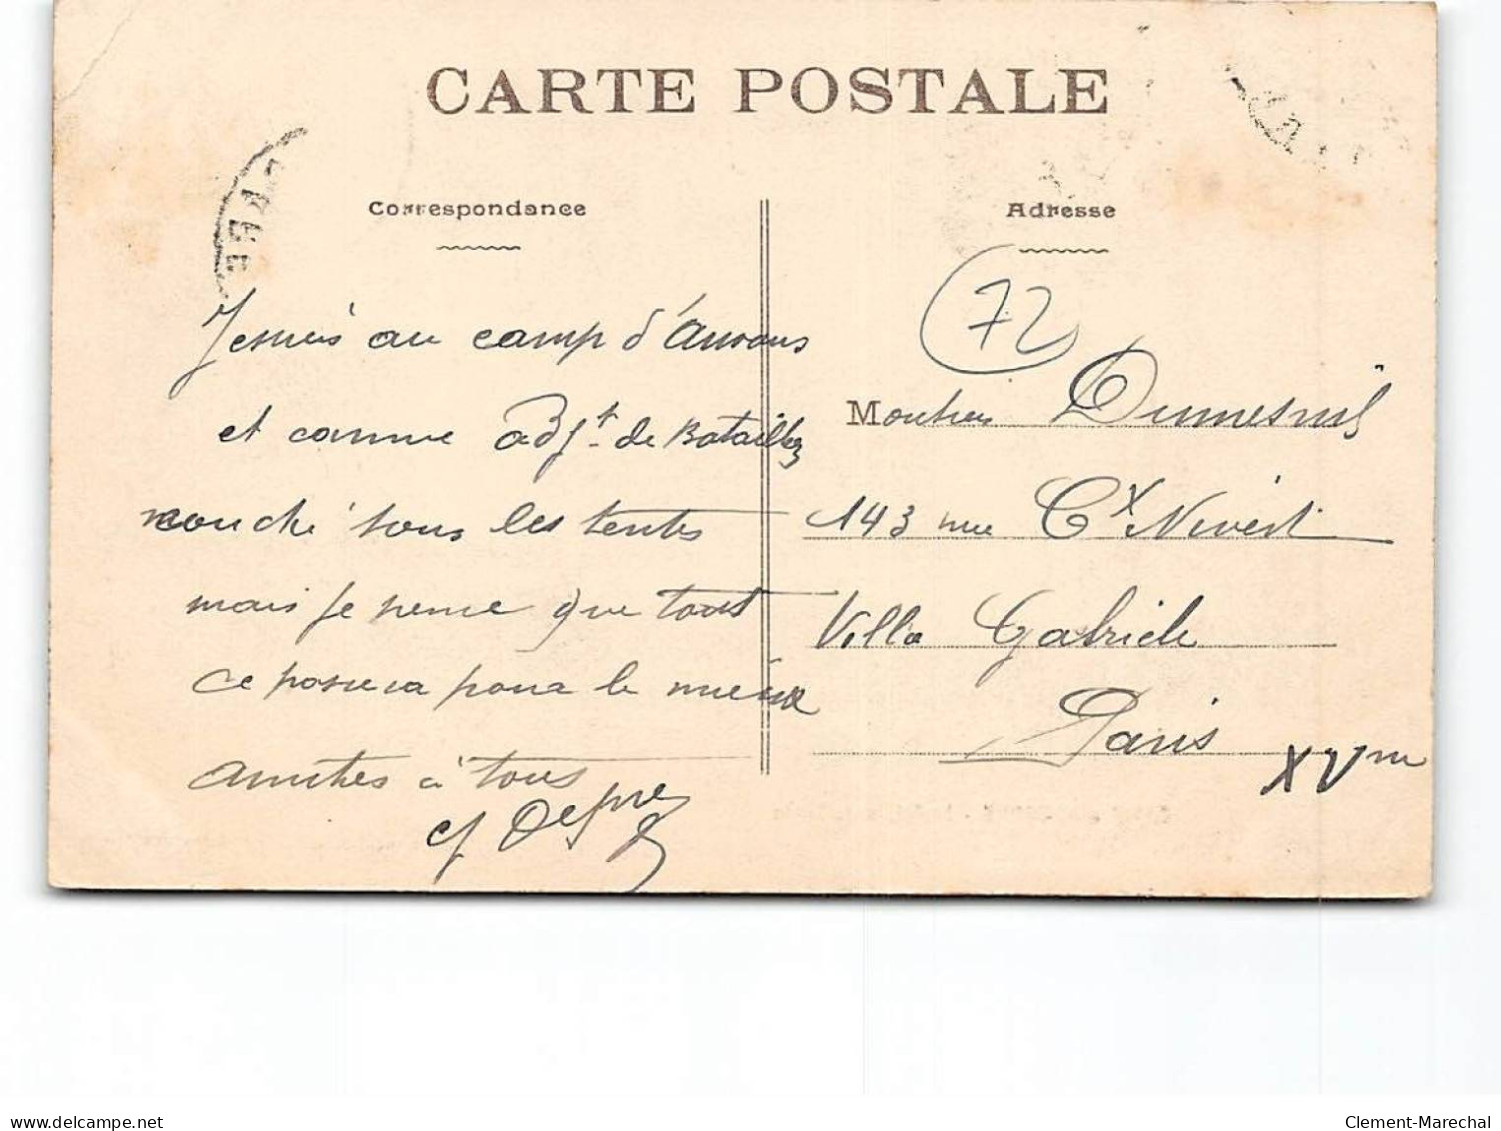 CARTE POSTALE
Correspondance
Adresse
72
Je suis au camp d'Auvours
et comme adjt de Bataillon
couche sous les tentes
mais je pense que tout
ce passera pour le mieux
amitiés à tous
Monsieur Dumesnil
143 rue Cx Nivert
Villa Gabrielle
Paris
XVme
delcampe.net
Clement-Marechal